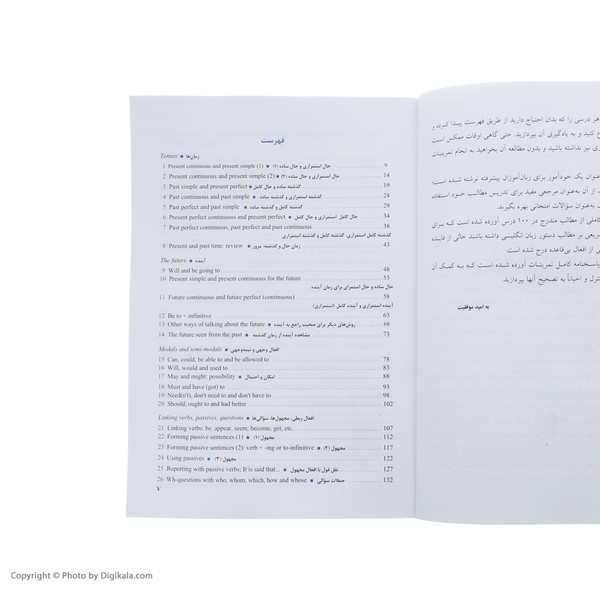 فهرست
Tenses ■ زمان‌ها
1 Present continuous and present simple (1) ■ حال استمراری و حال ساده (۱) 9
2 Present continuous and present simple (2) ■ حال استمراری و حال ساده (۲) 14
3 Past simple and present perfect ■ گذشته ساده و حال کامل 19
4 Past continuous and past simple ■ گذشته استمراری و گذشته ساده 24
5 Past perfect and past simple ■ گذشته کامل و گذشته ساده 29
6 Present perfect continuous and present perfect ■ حال کامل استمراری و حال کامل 34
7 Past perfect continuous, past perfect and past continuous 38
گذشته کامل استمراری، گذشته کامل و گذشته استمراری
8 Present and past time: review ■ زمان حال و گذشته: مرور 43
The future ■ آینده
9 Will and be going to 48
10 Present simple and present continuous for the future 53
حال ساده و حال استمراری برای زمان آینده
11 Future continuous and future perfect (continuous) 58
آینده استمراری و آینده کامل (استمراری)
12 Be to + infinitive 63
13 Other ways of talking about the future ■ روش‌های دیگر برای صحبت راجع به آینده 68
14 The future seen from the past ■ مشاهده آینده از زمان گذشته 73
Modals and semi-modals ■ افعال وجهی و نیمه‌وجهی
15 Can, could, be able to and be allowed to 78
16 Will, would and used to 83
17 May and might: possibility ■ امکان و احتمال 88
18 Must and have (got) to 93
19 Need(n't), don't need to and don't have to 98
20 Should, ought to and had better 102
Linking verbs, passives, questions ■ افعال ربطی، مجهول‌ها، سؤالی‌ها
21 Linking verbs: be, appear, seem; become, get, etc. 107
22 Forming passive sentences (1) ■ مجهول (۱) 112
23 Forming passive sentences (2): verb + -ing or to-infinitive ■ مجهول (۲) 117
24 Using passives ■ مجهول (۳) 122
25 Reporting with passive verbs; It is said that... ■ نقل قول با افعال مجهول 127
26 Wh-questions with who, whom, which, how and whose ■ جملات سؤالی 132
۷
هر درسی را که بدان احتیاج دارید از طریق فهرست پیدا کرده و
کنید و به یادگیری آن بپردازید. حتی گاهی اوقات ممکن است
نیز نداشته باشید و بدون مطالعه آن بخواهید به انجام تمرینات
عنوان یک خودآموز برای زبان‌آموزان پیشرفته نوشته شده است؛
از آن به‌عنوان مرجعی مفید برای تدریس مطالب خود استفاده
به‌عنوان سؤالات امتحانی بهره بگیرند.
کاملی از مطالب مندرج در ۱۰۰ درس آورده شده است که برای
سریعی بر مطالب دستور زبان انگلیسی داشته باشند خالی از فایده
از افعال بی‌قاعده درج شده است.
پاسخنامه کامل تمرینات آورده شده است که به کمک آن
کنترل و احیاناً به تصحیح آنها بپردازید.
به امید موفقیت
Copyright © Photo by Digikala.com